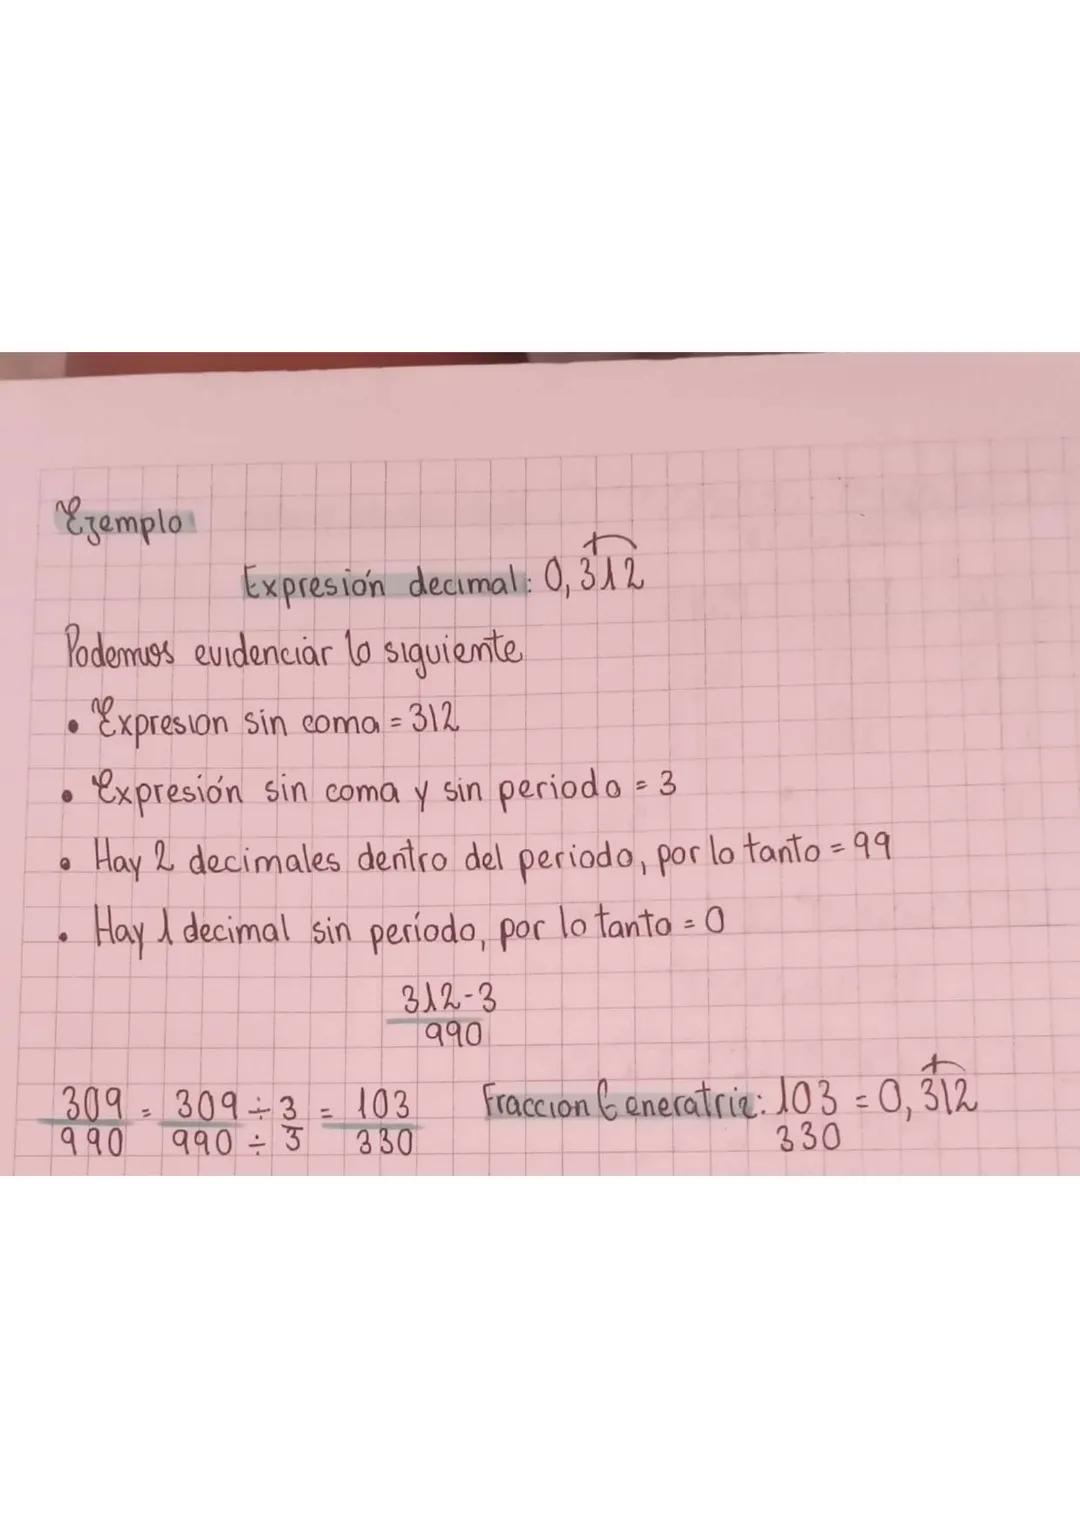 Ejemplo
Expresión decimal: 0,312
Podemos evidenciar lo siguiente
• Expresion sin coma = 312
• Expresión sin coma y sin periodo = 3
• Hay 2 decimales dentro del periodo, por lo tanto = 99
• Hay 1 decimal sin período, por lo tanto = 0
312-3
990
309 = 309 ÷ 3 = 103 Fraccion Generatriz: 103 = 0,312
990 990 ÷ 3 330 330